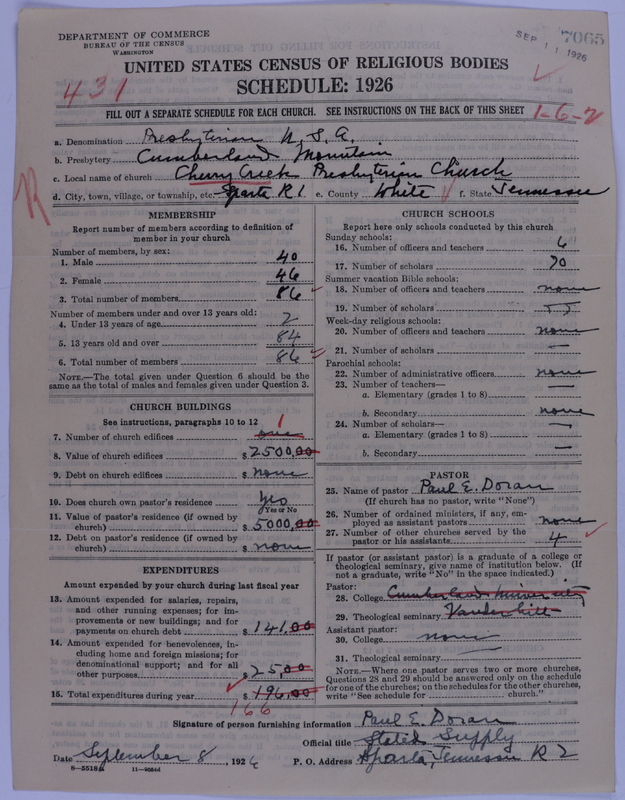 DEPARTMENT OF COMMERCE
BUREAU OF THE CENSUS
WASHINGTON
SEP 11 1926
7065
UNITED STATES CENSUS OF RELIGIOUS BODIES
431
SCHEDULE: 1926
FILL OUT A SEPARATE SCHEDULE FOR EACH CHURCH. SEE INSTRUCTIONS ON THE BACK OF THIS SHEET
1-6-2
a. Denomination Presbyterian U. S. A.
b. Presbytery Cumberland Mountain
c. Local name of church Cherry Creek Presbyterian Church
d. City, town, village, or township, etc. Sparta R1. e. County White f. State Tennessee
R
MEMBERSHIP
Report number of members according to definition of member in your church
Number of members, by sex:
1. Male 40
2. Female 46
3. Total number of members 86
Number of members under and over 13 years old:
4. Under 13 years of age 2
5. 13 years old and over 84
6. Total number of members 86
NOTE.—The total given under Question 6 should be the same as the total of males and females given under Question 3.
CHURCH BUILDINGS
See instructions, paragraphs 10 to 12
7. Number of church edifices one 1
8. Value of church edifices $ 2500.00
9. Debt on church edifices $ none
10. Does church own pastor's residence Yes
Yes or No
11. Value of pastor's residence (if owned by church) $ 5000.00
12. Debt on pastor's residence (if owned by church) $ none
EXPENDITURES
Amount expended by your church during last fiscal year
13. Amount expended for salaries, repairs, and other running expenses; for improvements or new buildings; and for payments on church debt $ 141.00
14. Amount expended for benevolences, including home and foreign missions; for denominational support; and for all other purposes $ 25.00
15. Total expenditures during year $ 196.00
166
CHURCH SCHOOLS
Report here only schools conducted by this church
Sunday schools:
16. Number of officers and teachers 6
17. Number of scholars 70
Summer vacation Bible schools:
18. Number of officers and teachers none
19. Number of scholars
Week-day religious schools:
20. Number of officers and teachers none
21. Number of scholars —
Parochial schools:
22. Number of administrative officers none
23. Number of teachers—
a. Elementary (grades 1 to 8) —
b. Secondary none
24. Number of scholars—
a. Elementary (grades 1 to 8) —
b. Secondary —
PASTOR
25. Name of pastor Paul E. Doran
(If church has no pastor, write "None")
26. Number of ordained ministers, if any, employed as assistant pastors none
27. Number of other churches served by the pastor or his assistants 4
If pastor (or assistant pastor) is a graduate of a college or theological seminary, give name of institution below. (If not a graduate, write "No" in the space indicated.)
Pastor:
28. College Cumberland University
29. Theological seminary Vanderbilt
Assistant pastor:
30. College none
31. Theological seminary —
NOTE.—Where one pastor serves two or more churches, Questions 28 and 29 should be answered only on the schedule for one of the churches; on the schedules for the other churches, write "See schedule for church."
Signature of person furnishing information Paul E. Doran
Official title Stated Supply
Date September 8, 1926 P. O. Address Sparta, Tennessee R 2